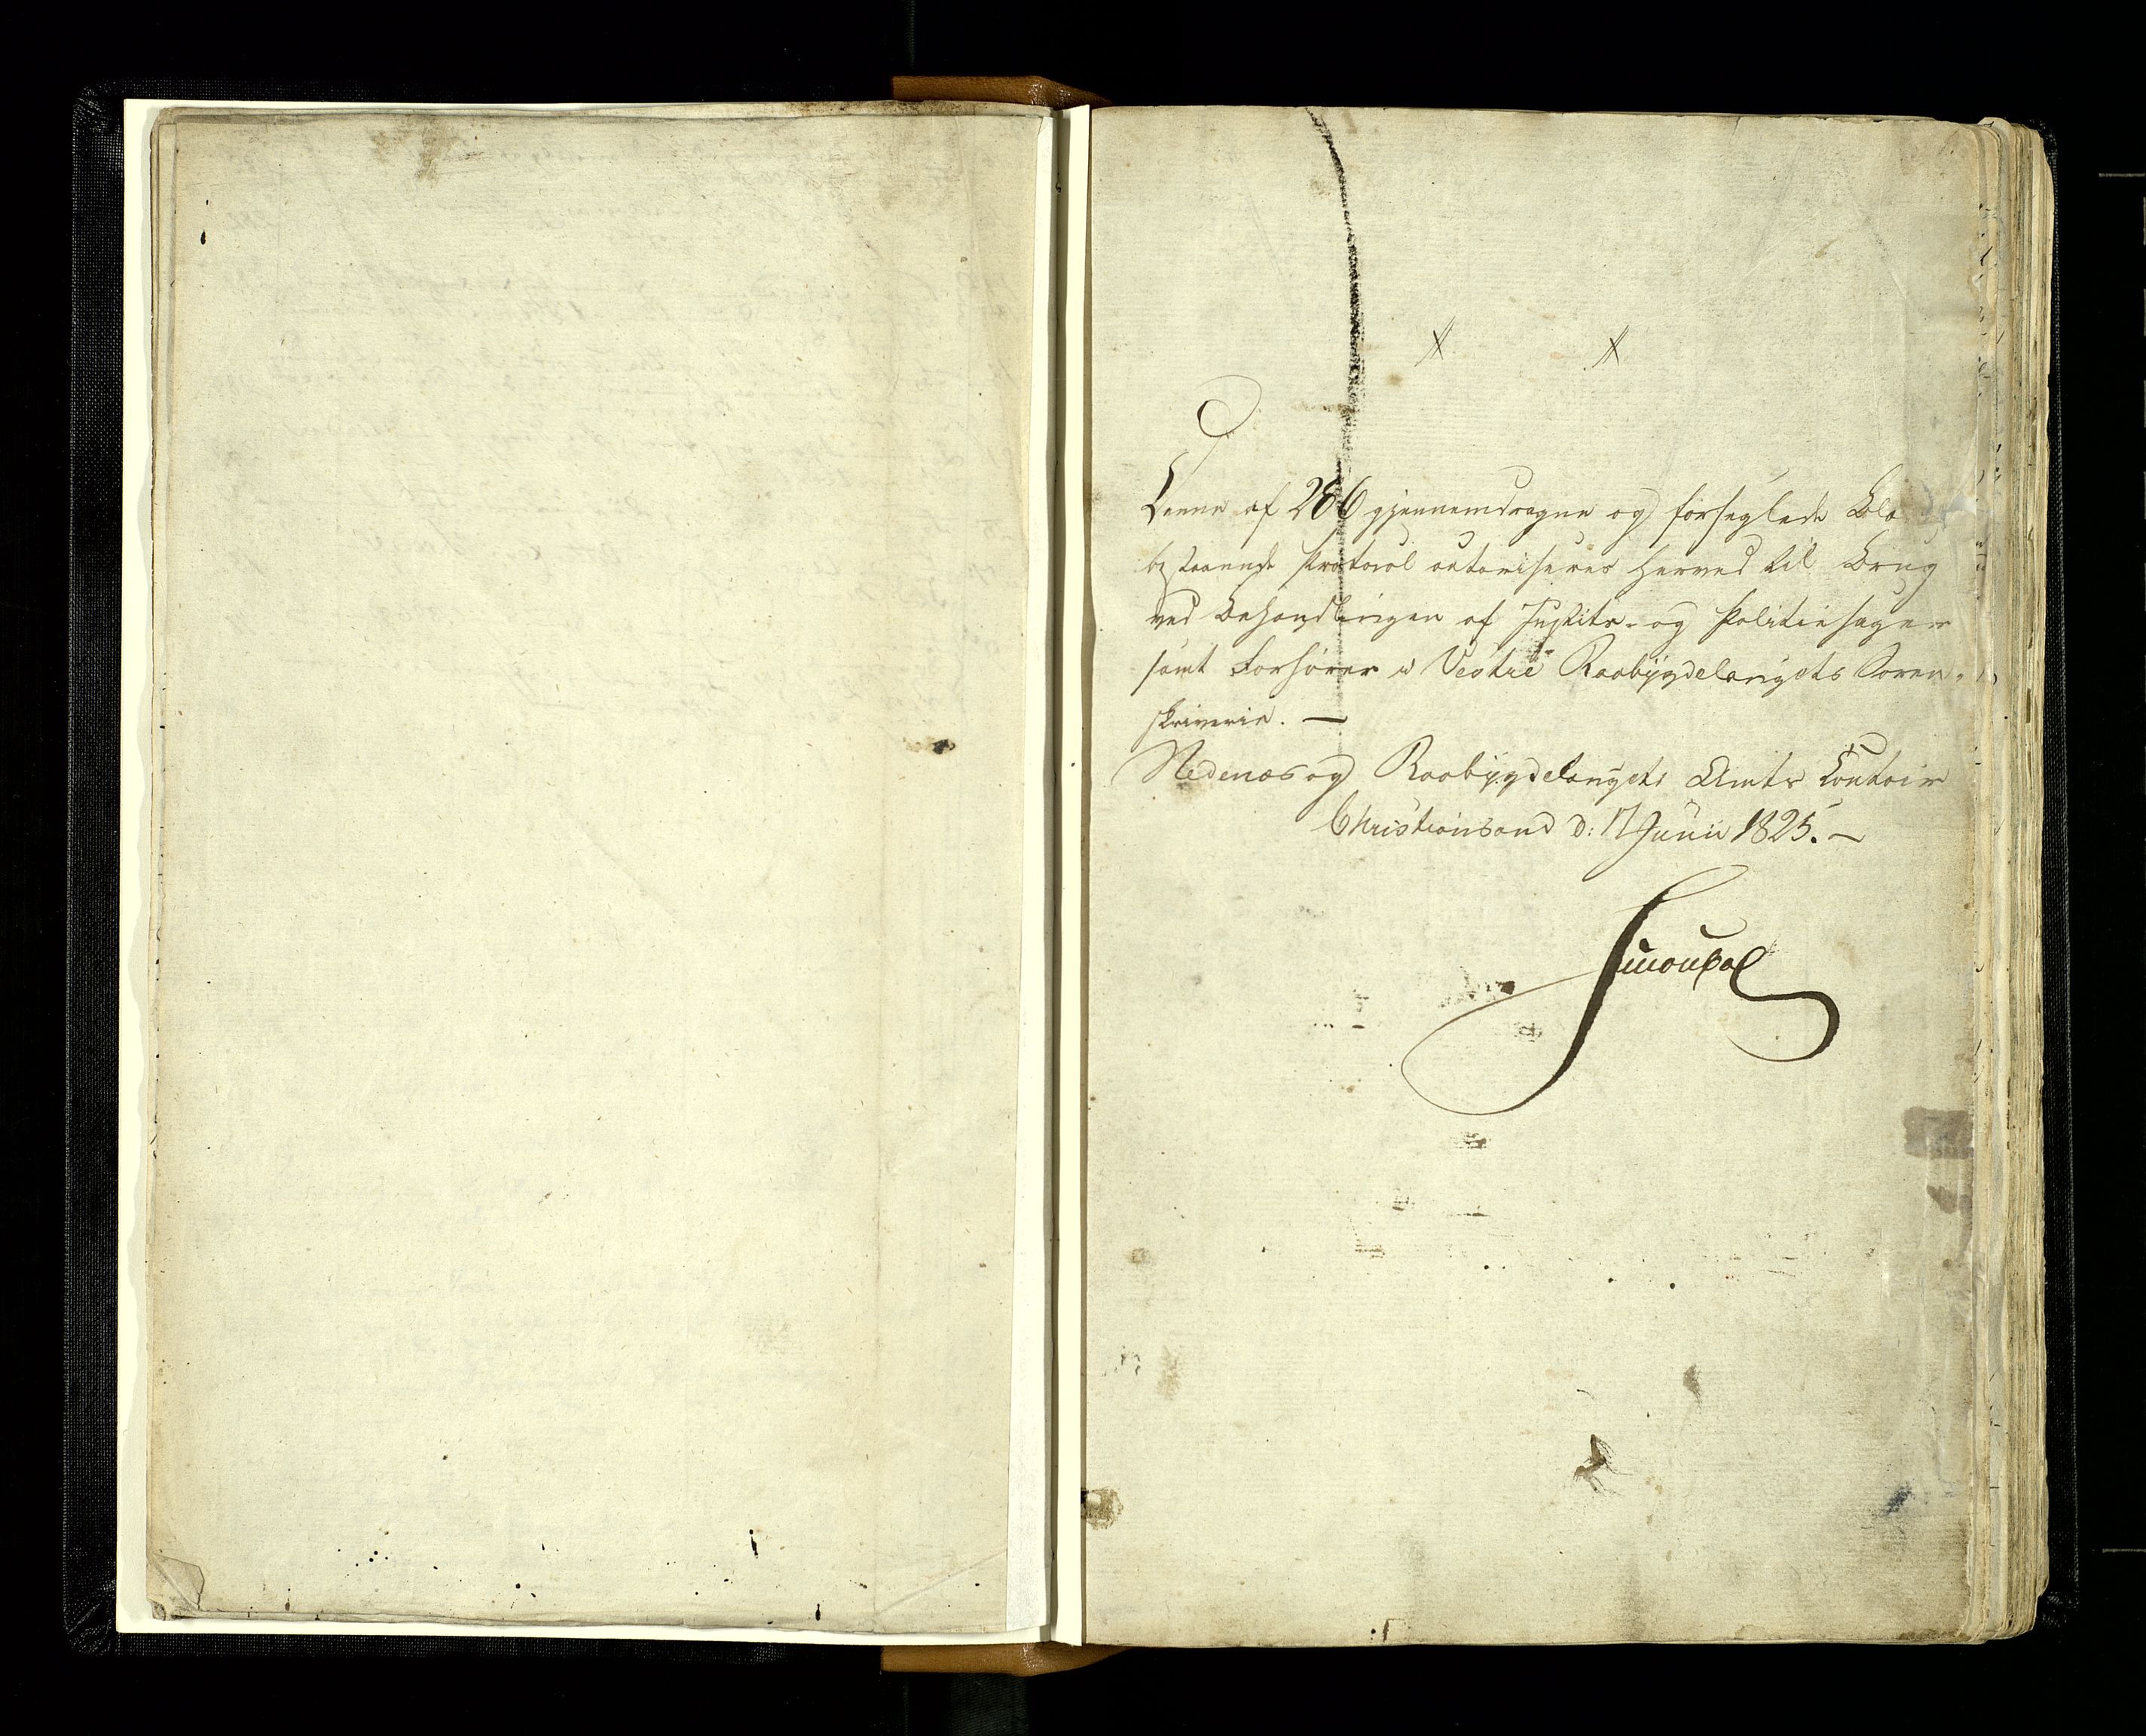 Denne af 286 gjennemdragne og forseglede Bla
bestaaende Protocol autoriseres herved til Brug
ved Behandlingen af Justits- og Politiesager
samt Forhører i Vestre Raabÿgdelaugets Soren-
skriverie. —
Nedenæs og Raabÿgdelaugets Amts Contoir
Christiansand d: 17 Junii 1825. —